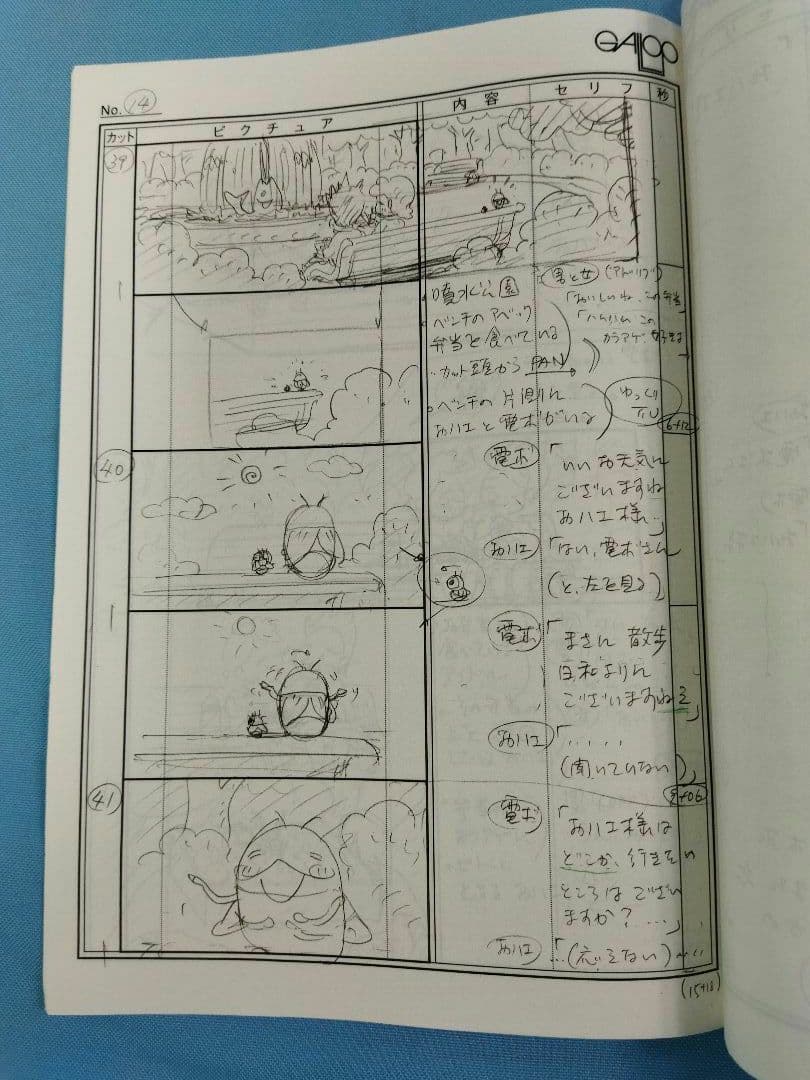 GALLOP
No. 14
カット
ピクチュア
内容
セリフ
秒
39
噴水公園
ベンチのアベック
弁当を食べている
カット頭から PAN。
ベンチの片側に
おハエと電ボがいる
男と女 (アドリブ)
「おいしいね、この弁当」
「ハムハム この
カラアゲ、
ゆっくり
6+12
40
電ボ
「いいお天気に
ございますね
おハエ様」
おハエ
「はい、電ボさん」
(と、左を見る)
電ボ
「まさに 散歩
日和よりに
ございますねえ」
おハエ
「....
(聞いていない)」
9+06
41
電ボ
「おハエ様は
どこか、行きたい
ところはござい
ますか?...」
おハエ
「...(応えない)
(15+18)